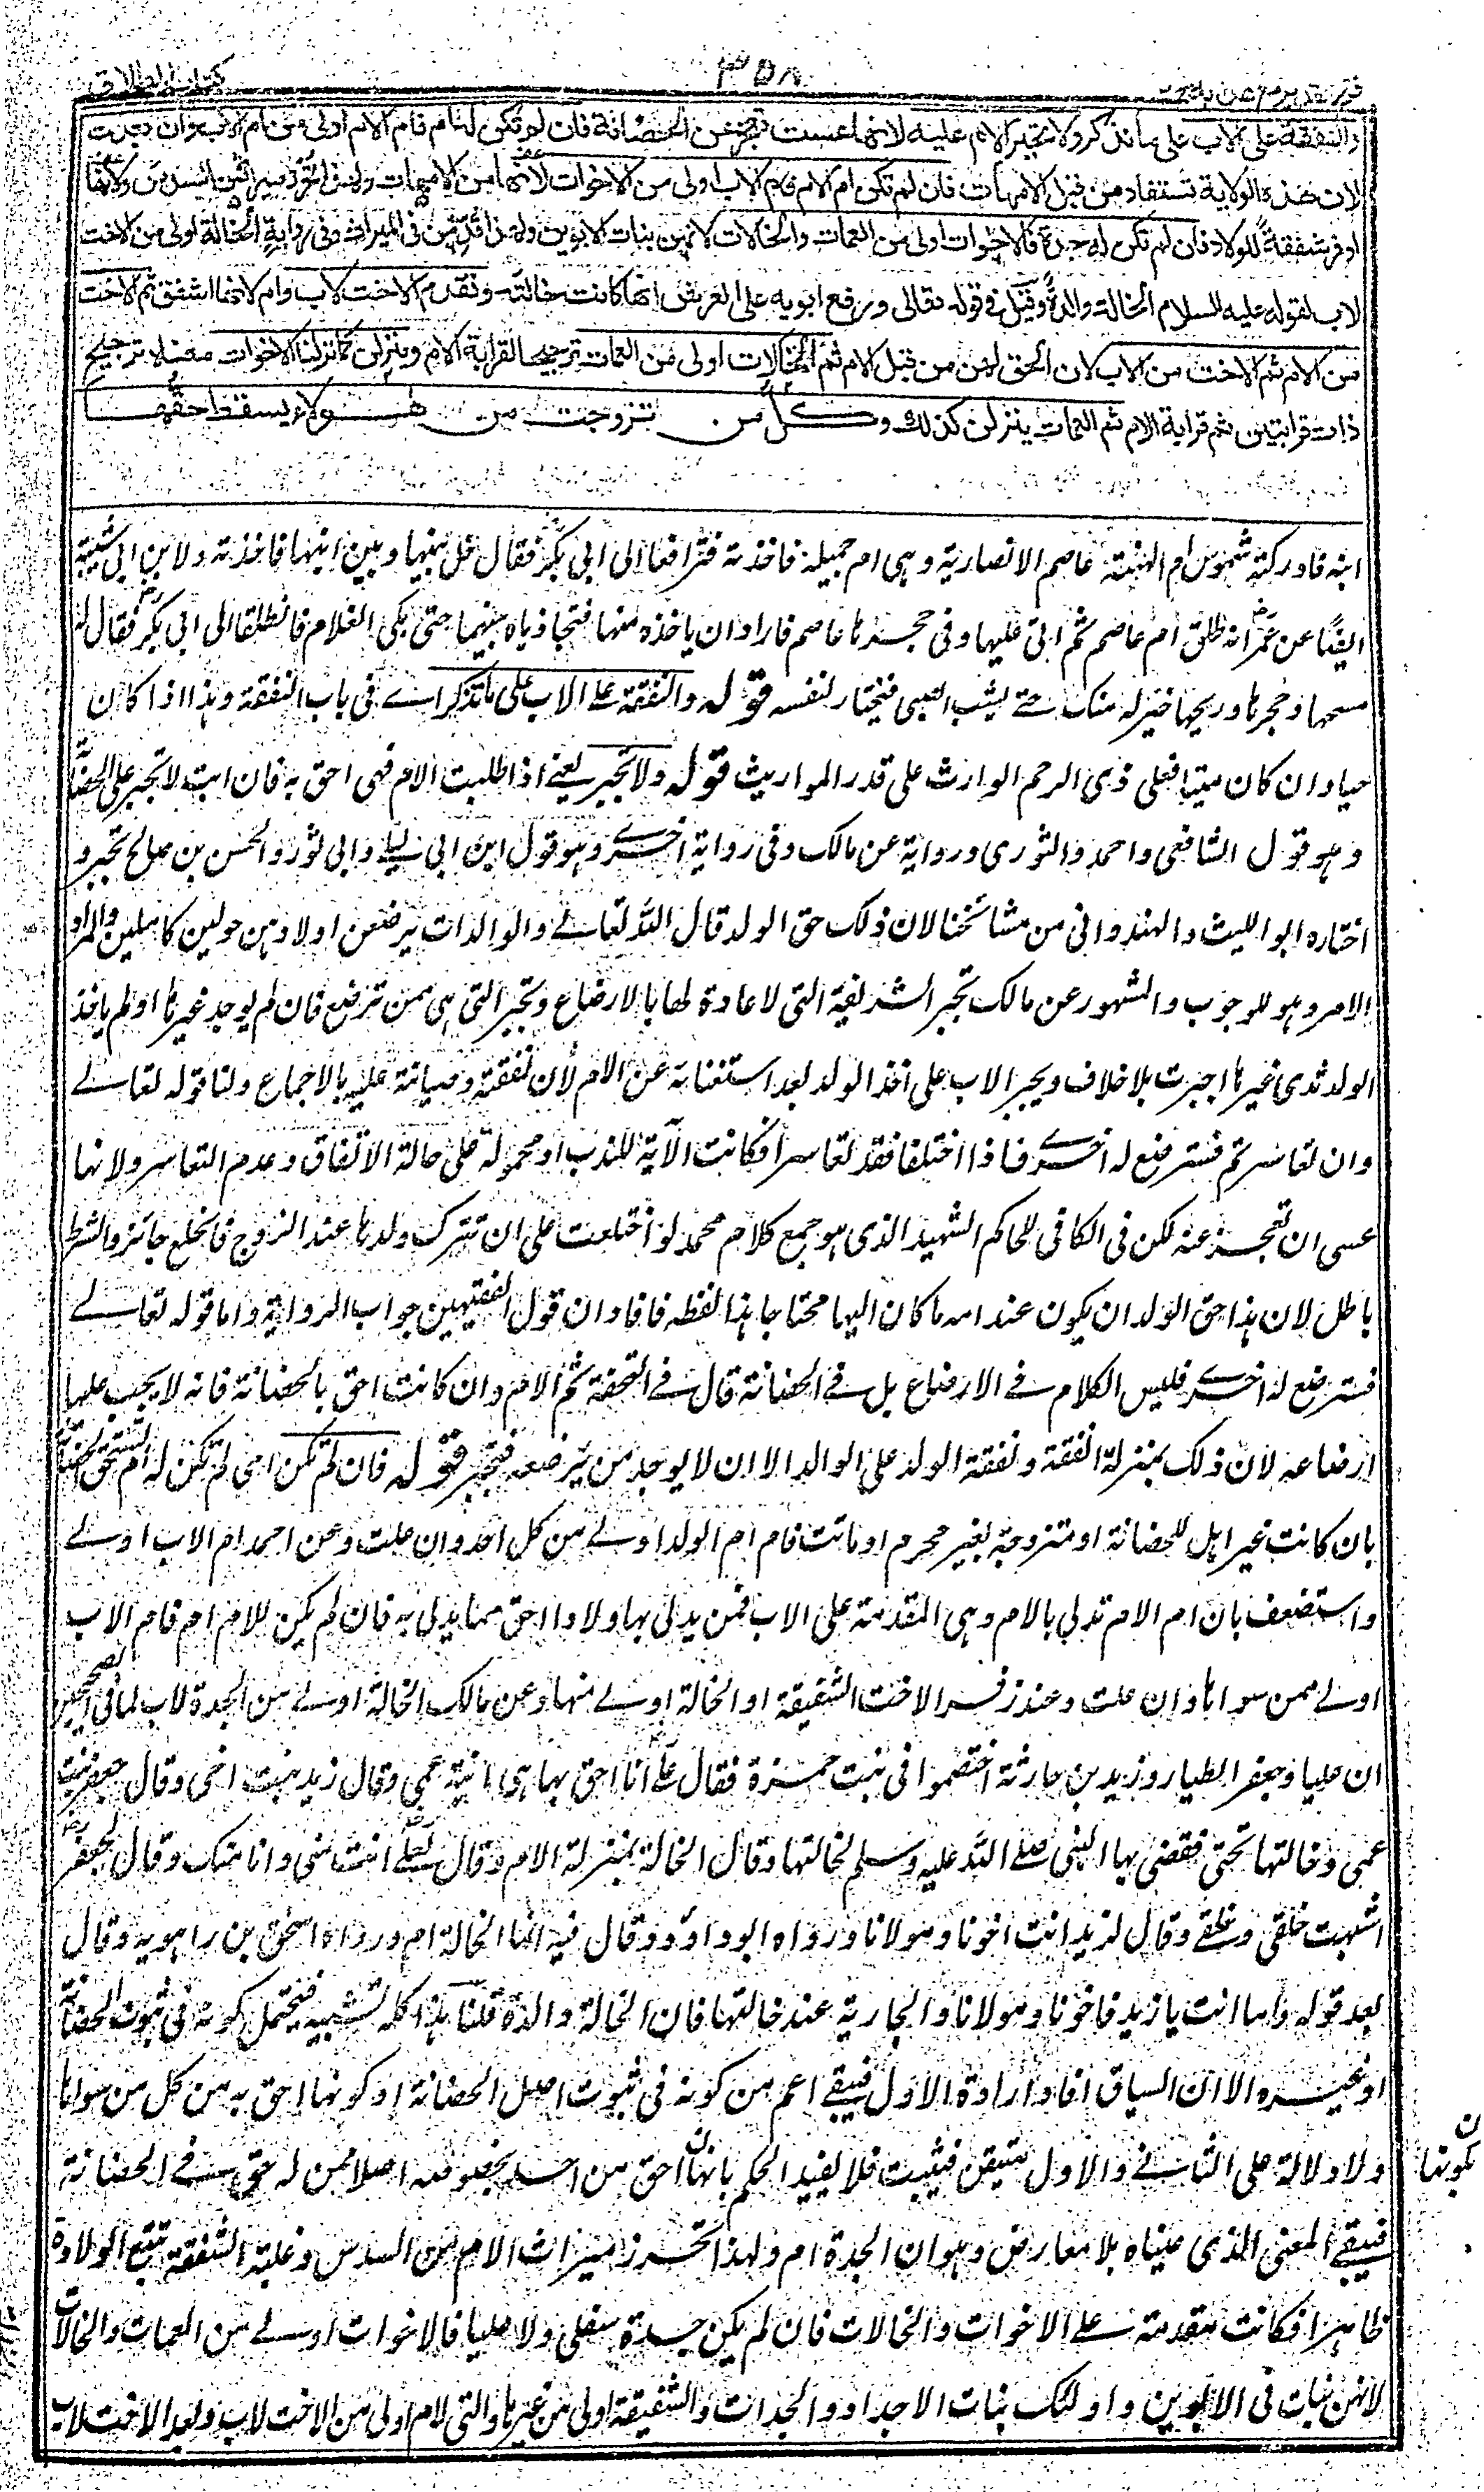 فتح القدير مع الهداية ٣٥٨ كتاب الطلاق
والنفقة على الاب على ما نذكر ولا تجبر الام عليه لانها عست تعجز عن الحضانة فان لم تكن له ام فام الام اولى من ام الاب وان بعدت
لان هذه الولاية تستفاد من قبل الامهات فان لم تكن ام الام فام الاب اولى من الاخوات لانها من الامهات ولهذا تحرز ميراثهن السدس ولانها
اوفر شفقة للولاد فان لم تكن له جدة فالاخوات اولى من العمات والخالات لانهن بنات الابوين ولهذا قدمن في الميراث وفي رواية الخالة اولى من الاخت
لاب لقوله عليه السلام الخالة والدة وقيل في قوله تعالى ورفع ابويه على العرش انها كانت خالته وتقدم الاخت لاب وام لانها اشفق ثم الاخت
من الام ثم الاخت من الاب لان الحق لهن من قبل الام ثم الخالات اولى من العمات ترجيحا لقرابة الام وينزلن كما نزلنا الاخوات معناه ترجيح
ذات قرابتين ثم قرابة الام ثم العمات ينزلن كذلك وكل من تزوجت من هؤلاء يسقط حقها
ابنه فادركته شموس ام ابنة عاصم الانصارية وهى ام جميلة فاخذته فترافعا الى ابى بكر فقال خل بينها وبين ابنها فاخذته ولابن ابى شيبة
ايضا عن عمر انه طلق ام عاصم ثم اتى عليها وفى حجرها عاصم فاراد ان ياخذه منها فتجاذباه بينهما حتى بكى الغلام فانطلقا الى ابى بكر فقال له
مسحها وحجرها وريحها خير له منك حتى يشب الصبى فيختار لنفسه قوله والنفقة على الاب على ما نذكر اى فى باب النفقة وهذا اذا كان
حيا وان كان ميتا فعلى ذى الرحم الوارث على قدر المواريث قوله ولا تجبر يعنى اذا طلبت الام فهى احق به فان ابت لا تجبر على الحضانة
وهو قول الشافعى واحمد والثورى ورواية عن مالك وفى رواية اخرى وهو قول ابن ابى ليلى وابى ثور والحسن بن صالح تجبر و
اختاره ابو الليث والهندوانى من مشائخنا لان ذلك حق الولد قال الله تعالى والوالدات يرضعن اولادهن حولين كاملين والمراد
الامر وهو للوجوب والمشهور عن مالك لا تجبر الشريفة التى لا عادة لها بالارضاع وتجبر التى هى ممن ترضع فان لم يوجد غيرها او لم ياخذ
الولد ثدى غيرها اجبرت بلا خلاف ويجبر الاب على اخذ الولد بعد استغنائه عن الام لان نفقته وصيانته عليه بالاجماع ولنا قوله تعالى
وان تعاسرتم فسترضع له اخرى فاذا اختلفا فقد تعاسرا فكانت الآية للندب او محمولة على حالة الاتفاق وعدم التعاسر ولانها
عسى ان تعجز عنه لكن فى الكافى للحاكم الشهيد الذى هو جمع كلام محمد لو اختلعت على ان تترك ولدها عند الزوج فالخلع جائز والشرط
باطل لان هذا حق الولد ان يكون عند امه ما كان اليها محتاجا هذا لفظه فافاد ان قول الفقيهين جواب الرواية واما قوله تعالى
فسترضع له اخرى فليس الكلام فى الارضاع بل فى الحضانة قال فى التحفة ثم الام وان كانت احق بالحضانة فانه لا يجب عليها
ارضاعه لان ذلك بمنزلة النفقة ونفقة الولد على الوالد الا ان لا يوجد من يرضعه فتجبر قوله فان لم تكن اى لم تكن له ام تستحق الحضانة
بان كانت غير اهل للحضانة او متزوجة بغير محرم او ماتت فام ام الولد اولى من كل احد وان علت وعن احمد ام الاب اولى
واستضعف بان ام الام تدلى بالام وهى المقدمة على الاب فمن يدلى بها ولادا احق ممن يدلى به فان لم يكن للام ام فام الاب
اولى ممن سواها وان علت وعند زفر الاخت الشقيقة او الخالة اولى منها وعن مالك الخالة اولى من الجدة لاب لما فى الصحيحين
ان عليا وجعفر الطيار وزيد بن حارثة اختصموا فى بنت حمزة فقال على انا احق بها هى ابنة عمى وقال زيد بنت اخى وقال جعفر بنت
عمى وخالتها تحتى فقضى بها النبى صلى الله عليه وسلم لخالتها وقال الخالة بمنزلة الام وقال لعلى انت منى وانا منك وقال لجعفر
اشبهت خلقى وخلقى وقال لزيد انت اخونا ومولانا ورواه ابو داود وقال فيه انما الخالة ام ورواه اسحق بن راهويه وقال
بعد قوله واما انت يا زيد فاخونا ومولانا والجارية عند خالتها فان الخالة والدة قلنا هذا كله تشبيه فيحتمل كونه فى ثبوت الحضانة
او غيره الا ان السياق افاد ارادة الاول فيبقى اعم من كونه فى ثبوت اصل الحضانة او كونها احق به من كل من سواها
ولا دلالة على الثانى والاول متيقن فيثبت فلا يفيد الحكم بانها احق من احد بخصوصه اصلا ممن له حق فى الحضانة
كونها ن
فيبقى المعنى الذى عيناه بلا معارض وهو ان الجدة ام ولهذا تحرز ميراث الام من السدس وغلبة الشفقة تتبع الولادة
ظاهرا فكانت مقدمة على الاخوات والخالات فان لم يكن جدة سفلى ولا عليا فالاخوات اولى من العمات والخالات
لانهن بنات فى الابوين واولئك بنات الاجداد والجدات والشقيقة اولى من غيرها والتى لام اولى من الاخت لاب وبعد الاخت لاب